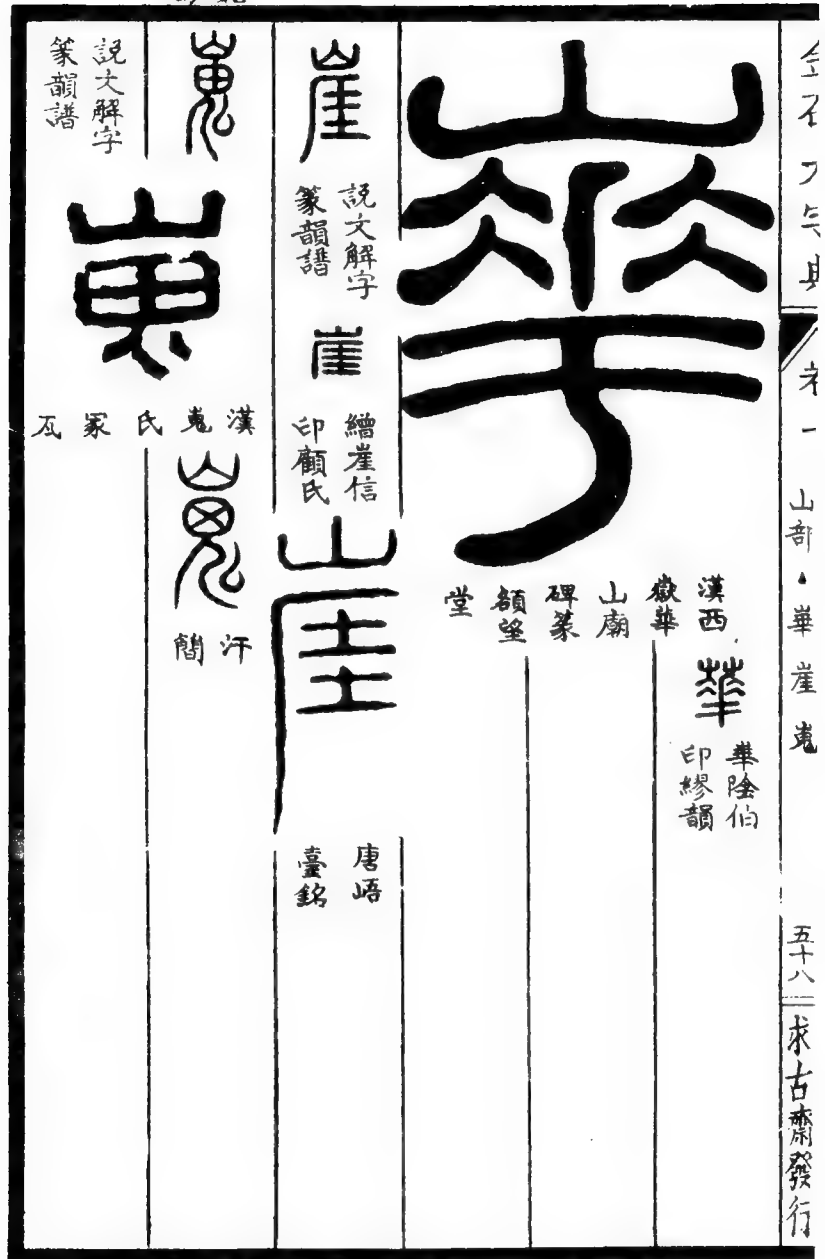 金石大字典
卷一
山部 華 崖 嵬
五十八
求古齋發行
華
漢西
嶽華
山廟
碑篆
額望
堂
華
華陰伯
印繆韻
崖
説文解字
篆韻譜
崖
繒崖信
印顧氏
崖
唐峿
臺銘
嵬
汗
簡
嵬
説文解字
篆韻譜
嵬
漢
嵬
氏
冢
瓦